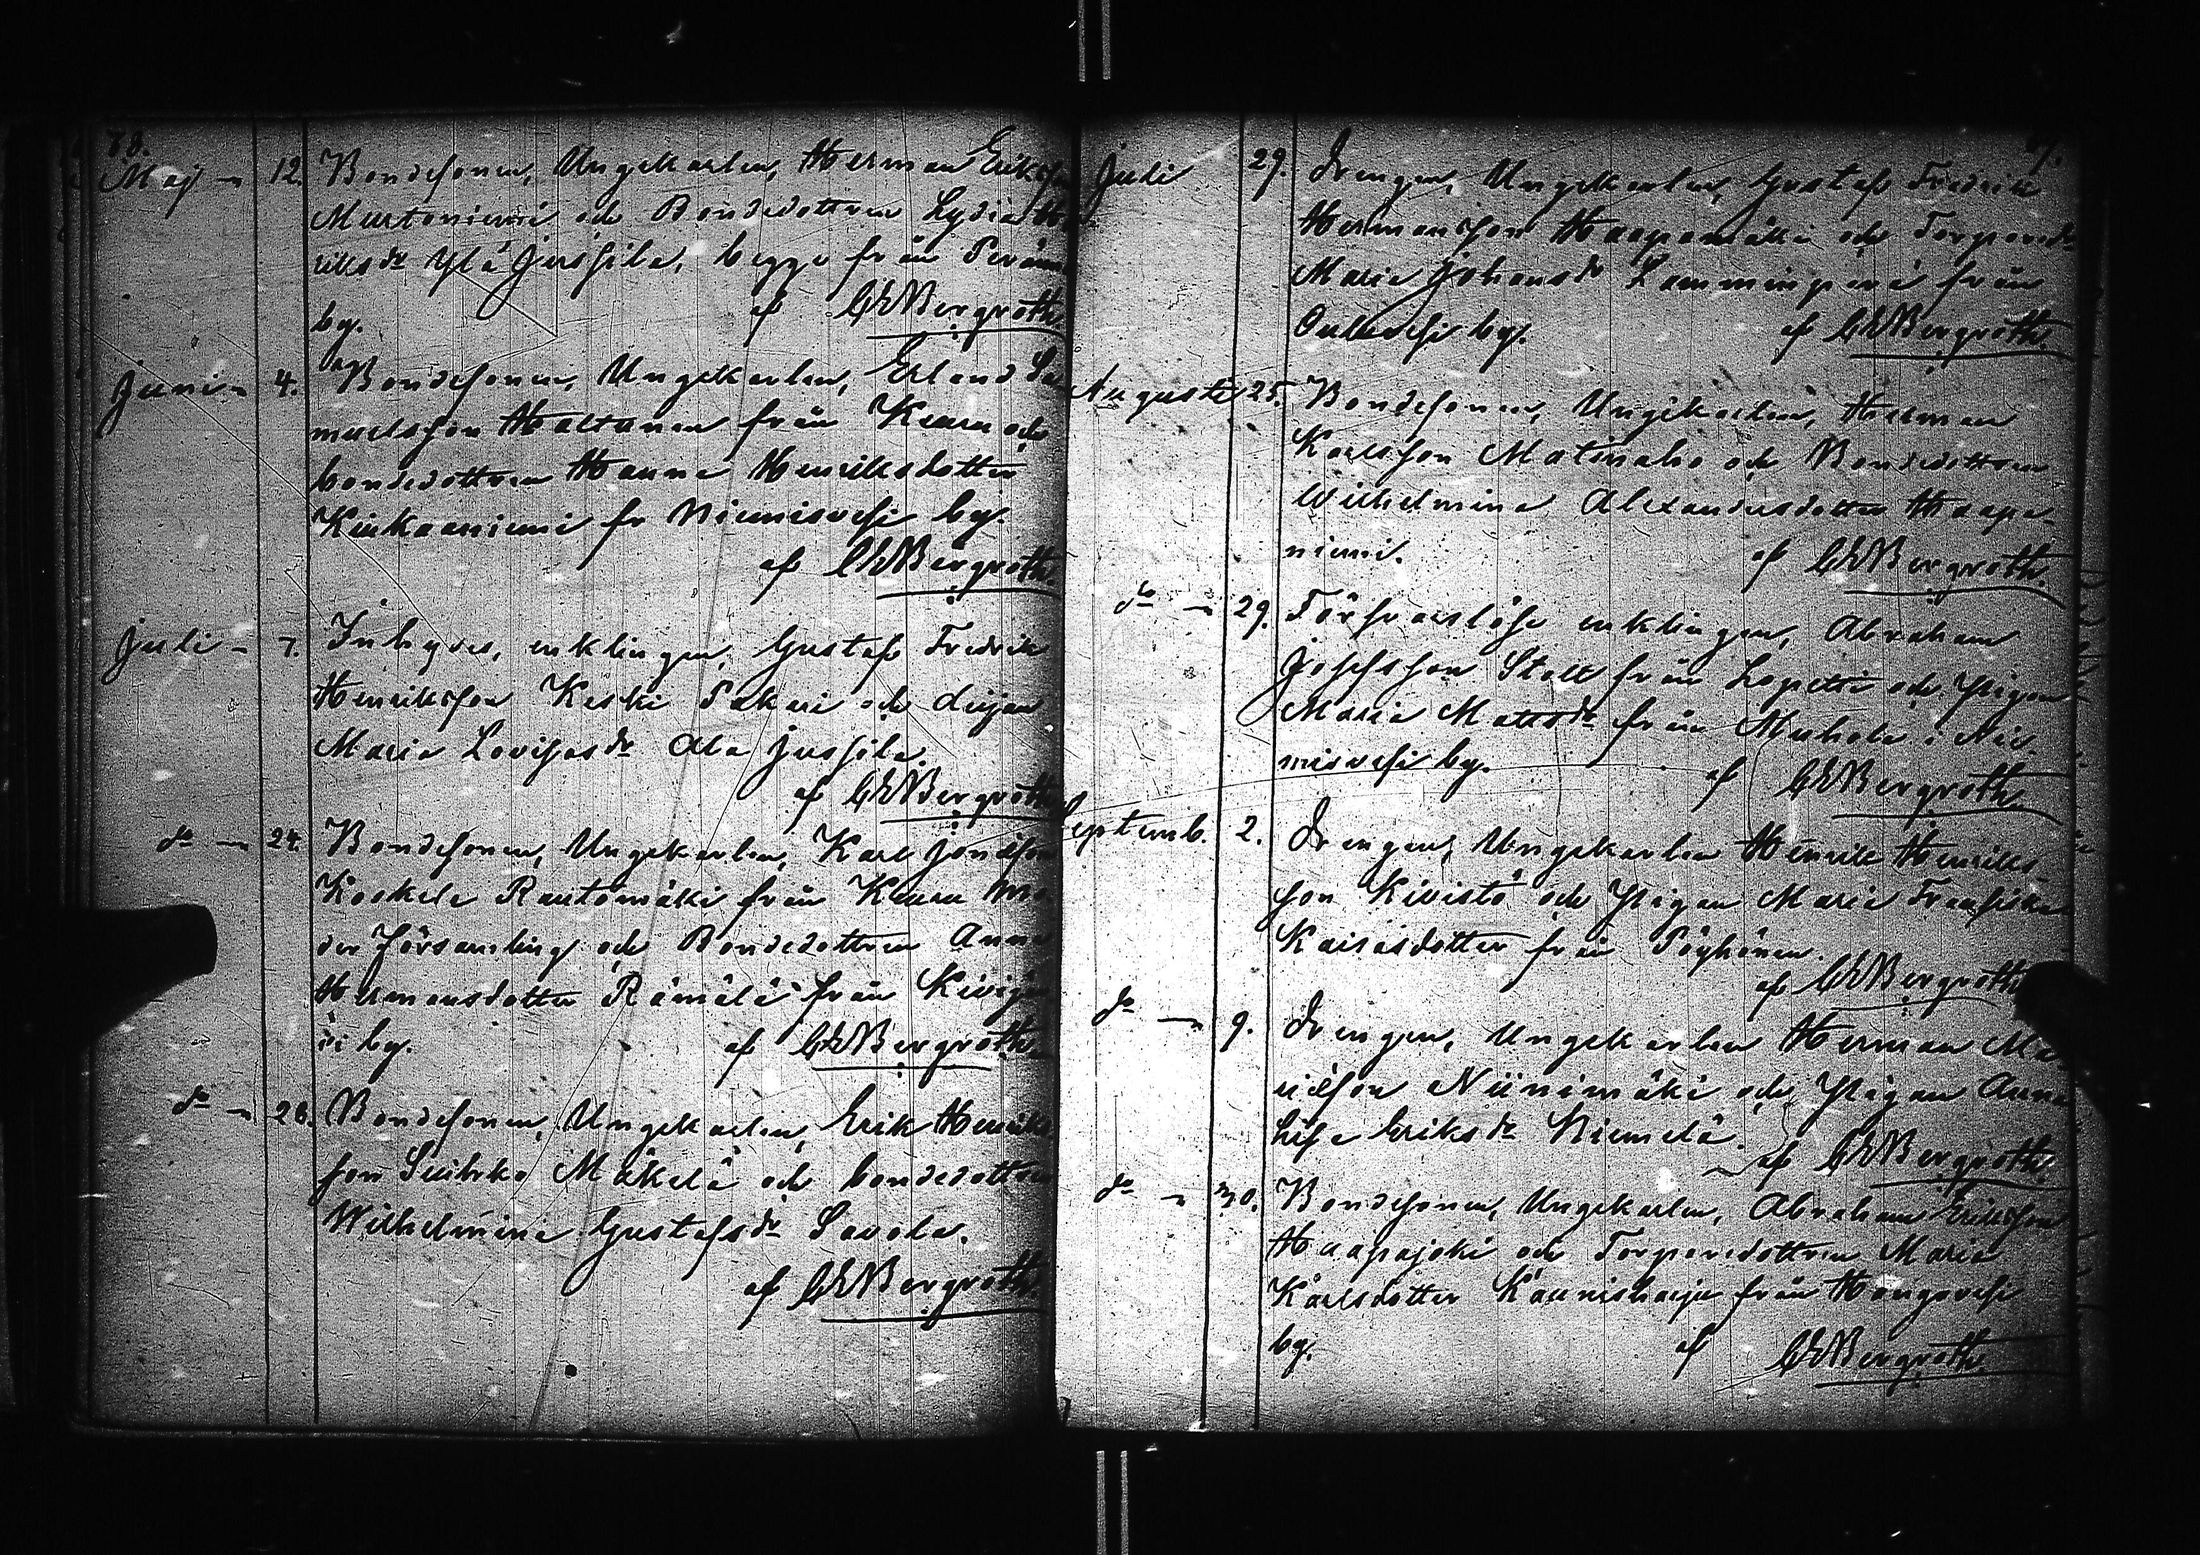 78.
Maj 12. Bondesonen, Ungekarlen, Herman Eriksson
Martoniemi och Bondedottren Lydia
riksdr Ylä Jussila, begge från Peränne
by. af CEBergroth.
Juni 4. Bondesonen, Ungekarlen, Erland Sa
muelsson Haltunen från Keuru och
bondedottren Hanna Henriksdotter
Kiukaaniemi fr Niemisvesi by.
af CEBergroth.
Juli 7. Inhyses, enklingen, Gustaf Fredrik
Henriksson Keski Pakari och dejan
Maria Lovisasdr Ala Jussila.
af CEBergroth
do 24. Bondesonen, Ungekarlen, Karl Jonasson
Koskela Rautomäki från Keuru Mo
der församling och Bondedottren Anna
Hermansdotter Rämälä från Kivijär
vi by. af CEBergroth
do 28. Bondesonen, Ungekarlen, Erik Henriks
son Suihko Mäkelä och bondedottren
Wilhelmina Gustafsdr Savola.
af CEBergroth.
Juli 29. Drengen, Ungekarlen, Gustaf Fredrik
Hermansson Haapamäki och Torparedr
Maria Johansdr Lamminperä från
by. af CEBergroth.
Augusti 25. Bondesonen, Ungekarlen, Herman
Karlsson Matinaho och Bondedottren
Wilhelmina Alexandersdotter Haapa-
niemi. af CEBergroth.
do 29. Försvarslöse enklingen, Abraham
Josefsson Stolt från Lopetti och Pigan
Maria Mattsdr från Muhola i Nie-
misvesi by. af CEBergroth
Septemb. 2. Drengen, Ungekarlen Henrik Henriks-
son Kivistö och Pigan Maria Fransiska
Kaisasdotter från Pöyhönen.
af CEBergroth
do 9. Drengen, Ungekarlen Herman Ma
Niinimäki och Pigan Anna
Lisa Eriksdr Niemelä.
af CEBergroth.
do 30. Bondesonen, Ungekarlen, Abraham Eriksson
Haapajoki och Torparedottren Maria
Karlsdotter Kauniskangas från Hongavesi
by. af CEBergroth